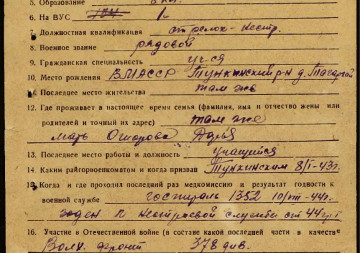 5. Образование
6. На ВУС
7. Должностная квалификация стрелок-
8. Военное звание рядовой
9. Гражданская специальность уч-ся
10. Место рождения БМАССР Тункинский р-н д.
11. Последнее место жительства там же
12. Где проживает в настоящее время семья (фамилия, имя и отчество жены или
родителей и точный их адрес) там же
мать Дарья
13. Последнее место работы и должность учащийся
14. Каким райгорвоенкоматом и когда призван Тункинским 8/I-43г.
15. Когда и где проходил последний раз медкомиссию и результат годности к
военной службе госпиталь 1352 10/VIII-44г.
годен к нестроевой службе
16. Участие в Отечественной войне (в составе какой последней части в качестве
фронт 378 див.